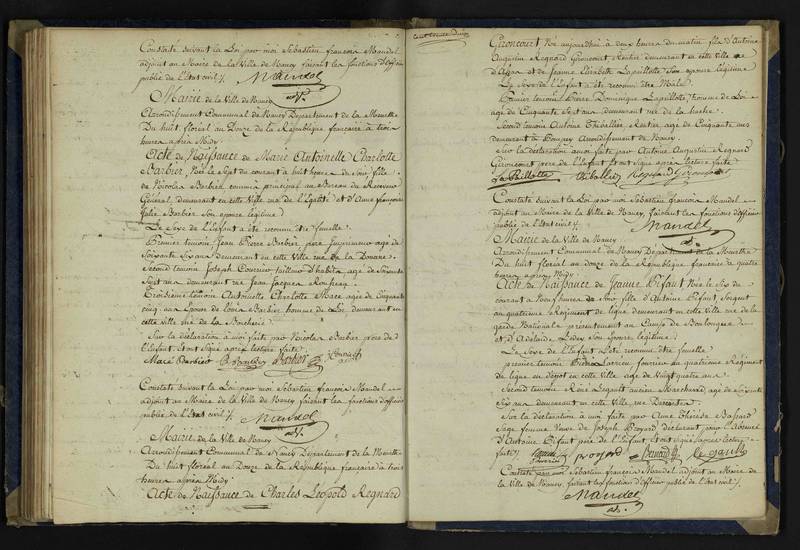 Constaté suivant la Loi par moi Sébastien françois Mandel
adjoint au Maire de la Ville de Nancy faisant les fonctions d'officier
public de l'état civil /.
Mandel
adj.
Mairie de la Ville de Nancy
Arrondissement Communal de Nancy Département de la Meurthe
Du huit floréal an Douze de la République française à trois
heures après Midy
Acte de Naissance de Marie Antoinette Charlotte
Barbier Née le Sept du courant à huit heures du soir fille
de Nicolas Barbier commis principal au Bureau du Receveur
Général, demeurant en cette Ville rue de l'Egalité et d'Anne françoise
Julie Barbier Son épouse légitime
Le Sexe de l'Enfant a été reconnu être femelle
Premier témoin, Jean Pierre Barbier, père Imprimeur agé de
Soixante Six ans demeurant en cette Ville rue de la Douane
Second témoin Joseph Tailleur d'habits agé de Soixante
Sept ans demeurant rue Jean Jacques Rousseau
Troisième témoin Antoinette Charlotte Mace agée de Cinquante
cinq ans Epouse de Barbier homme de Loi, demeurant en
cette Ville rue de la
Sur la déclaration à moi faite par Nicolas Barbier père de
l'Enfant. Et ont Signé après lecture faite
Macé Barbier Barbier Barbier
Constaté suivant la Loi par moi Sébastien françois Mandel
adjoint au Maire de la Ville de Nancy, faisant les fonctions d'officier
public de l'état civil /.
Mandel
adj.
Mairie de la Ville de Nancy
Arrondissement Communal de Nancy Département de la Meurthe
Du huit floréal an Douze de la République française à trois
heures après Midy
Acte de Naissance de Charles Léopold Regnard
Gironcourt Né aujourd'hui à deux heures du matin fils d'Antoine
Augustin Regnard Gironcourt Rentier demeurant en cette Ville rue
et de Jeanne Elisabeth Lapaillotte Son épouse légitime
Le Sexe de l'Enfant a été reconnu être Mâle
Premier témoin Pierre Dominique Lapaillotte, homme de Loi
agé de Cinquante Sept ans demeurant rue de la hache
Second témoin Antoine Thiballier Rentier agé de Cinquante ans
demeurant à Arrondissement de Nancy
Sur la déclaration à moi faite par Antoine Augustin Regnard
Gironcourt père de l'Enfant. Et ont Signé après lecture faite
La Paillotte Thiballier Regnard Gironcourt
Constaté suivant la Loi par moi Sébastien françois Mandel
adjoint au Maire de la Ville de Nancy, faisant les fonctions d'officier
public de l'état civil /.
Mandel
adj.
Mairie de la Ville de Nancy
Arrondissement Communal de Nancy Département de la Meurthe
Du huit floréal an Douze de la République française à quatre
heures après Midy
Acte de Naissance de Jeanne Bifaut Née le Six du
courant à Neuf heures du soir fille d'Antoine Bifaut, Sergent
au quatrième Régiment de ligne demeurant en cette Ville rue de la
garde Nationale présentement au Camp de Boulogne
et d'Adelaïde Son épouse légitime
Le Sexe de l'Enfant a été reconnu être femelle
premier témoin Larrieu fourrier au quatrième Régiment
de ligne en dépôt en cette Ville agé de Vingt quatre ans
Second témoin René Legault ancien Marchand, agé de Soixante
Six ans demeurant en cette Ville rue
Sur la déclaration à moi faite par Anne Thérèse
Sage femme Veuve de Joseph Broyard déclarant pour l'absence
d'Antoine Bifaut père de l'Enfant, et ont signé après lecture
faite /.
Constaté par Sébastien françois Mandel adjoint au Maire de
la Ville de Nancy, faisant les fonctions d'officier public de l'état civil /.
Mandel
adj.